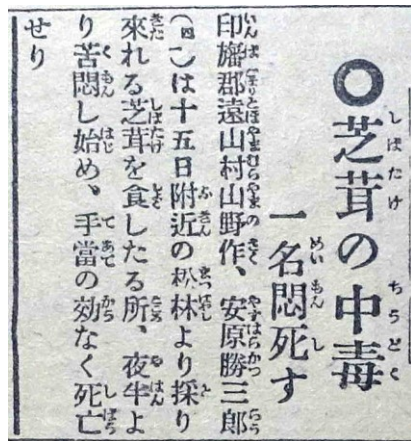 ◎芝茸の中毒
一名悶死す
印旛郡遠山村山野作、安原勝三郎
（四一）は十五日附近の松林より採り
來れる芝茸を食したる所、夜半よ
り苦悶し始め、手當の効なく死亡
せり